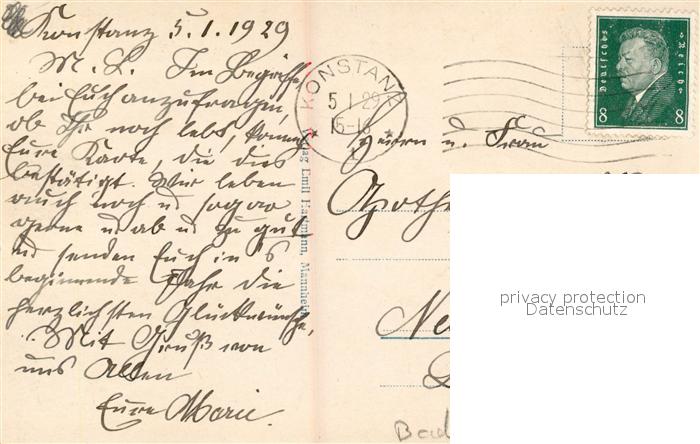 Konstanz 5.1.1929
M. L. Im Begriffe,
bei Euch anzufragen,
ob Ihr noch lebt, kommt
Eure Karte, die dies
bestätigt. Wir leben
auch noch u. sogar
gerne u. ab u. zu gut
u. senden Euch in's
beginnende Jahr die
herzlichsten Glückwünsche.
Mit Gruß von
uns Allen
Eure Marie.
Verlag Emil Hartmann, Mannheim
KONSTANZ
5.1.29
15-16
Deutsches Reich
8 8
Herrn u. Frau
Apothe
Ne
Bad
privacy protection
Datenschutz